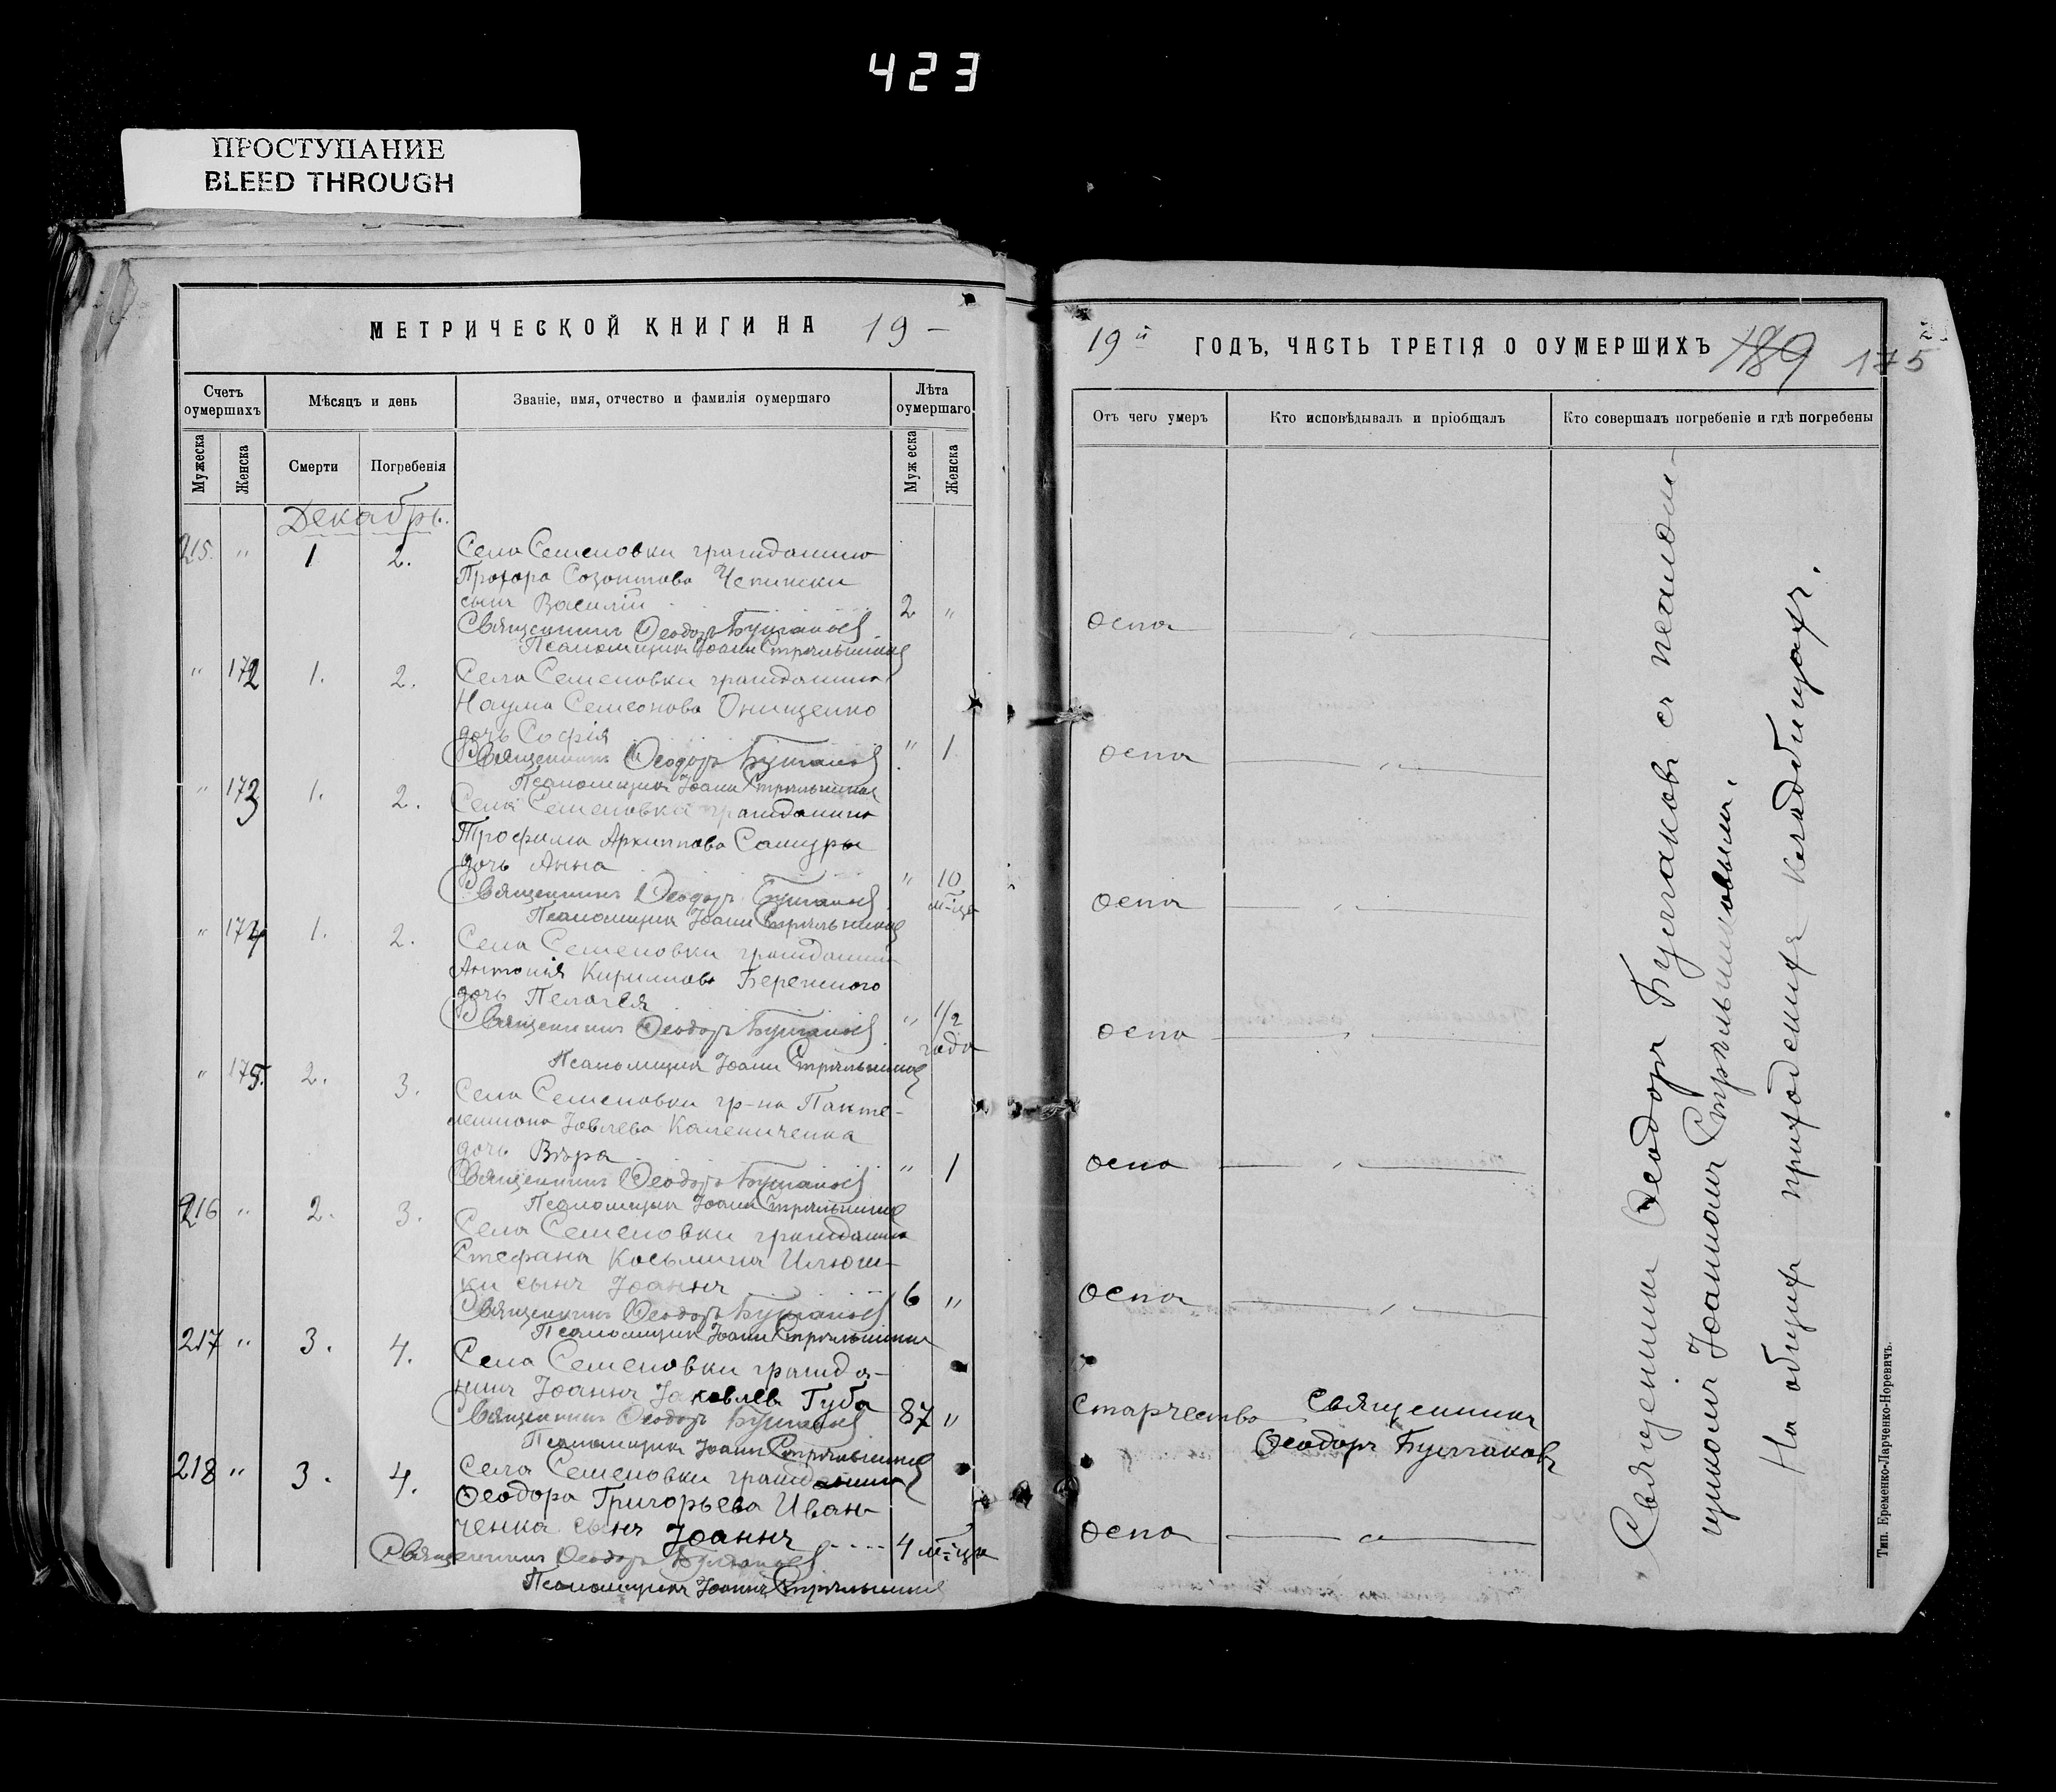 423
ПРОСТУПАНИЕ
BLEED THROUGH
МЕТРИЧЕСКОЙ КНИГИ НА 19 —
19 й ГОДЪ, ЧАСТЬ ТРЕТІЯ О ОУМЕРШИХЪ 189 175
Счетъ оумершихъ
Мѣсяцъ и день
Званіе, имя, отчество и фамилія оумершаго
Лѣта оумершаго
Отъ чего умеръ
Кто исповѣдывалъ и пріобщалъ
Кто совершалъ погребеніе и гдѣ погребены
Мужеска
Женска
Смерти
Погребенія
Муж еска
Женска
Декабрь.
215. " 1 2. Села Семеновки гражданина
Прохора Созонтова Чепижки
сынъ Василій 2 " оспа
Священникъ Ѳеодоръ Булгаковъ
Псаломщикъ Іоаннъ Стрѣльниковъ
" 172 1. 2. Села Семеновки гражданина
Наума Семенова Онищенко
дочь Софія " 1 оспа
Священникъ Ѳеодоръ Булгаковъ
Псаломщикъ Іоаннъ Стрѣльниковъ
" 173 1. 2. Села Семеновки гражданина
Трофима Архиппова Сашуры
дочь Анна " 10 м-цъ оспа
Священникъ Ѳеодоръ Булгаковъ
Псаломщикъ Іоаннъ Стрѣльниковъ
" 174 1. 2. Села Семеновки гражданина
Антонія Кириллова Бережного
дочь Пелагея " 1/2 года оспа
Священникъ Ѳеодоръ Булгаковъ
Псаломщикъ Іоаннъ Стрѣльниковъ
" 175. 2. 3. Села Семеновки гр-на Панте-
леимона Іовлева Калениченка
дочь Вѣра " 1 оспа
Священникъ Ѳеодоръ Булгаковъ
Псаломщикъ Іоаннъ Стрѣльниковъ
216 " 2. 3. Села Семеновки гражданина
Стефана Косьмина Илюш-
ки сынъ Іоаннъ 6 " оспа
Священникъ Ѳеодоръ Булгаковъ
Псаломщикъ Іоаннъ Стрѣльниковъ
217 " 3. 4. Села Семеновки гражда-
нинъ Іоаннъ Іаковлевъ Губа 87 " старчество Священникъ
Священникъ Ѳеодоръ Булгаковъ Ѳеодоръ Булгаковъ
Псаломщикъ Іоаннъ Стрѣльниковъ
218 " 3. 4. Села Семеновки гражданина
Ѳеодора Григорьева Иван-
ченка сынъ Іоаннъ 4 м-ца оспа
Священникъ Ѳеодоръ Булгаковъ
Псаломщикъ Іоаннъ Стрѣльниковъ
Священникъ Ѳеодоръ Булгаковъ съ псалом-
щикомъ Іоанномъ Стрѣльниковымъ.
На общихъ приходскихъ кладбищахъ.
Тип. Еременко-Ларченко-Норевичъ.